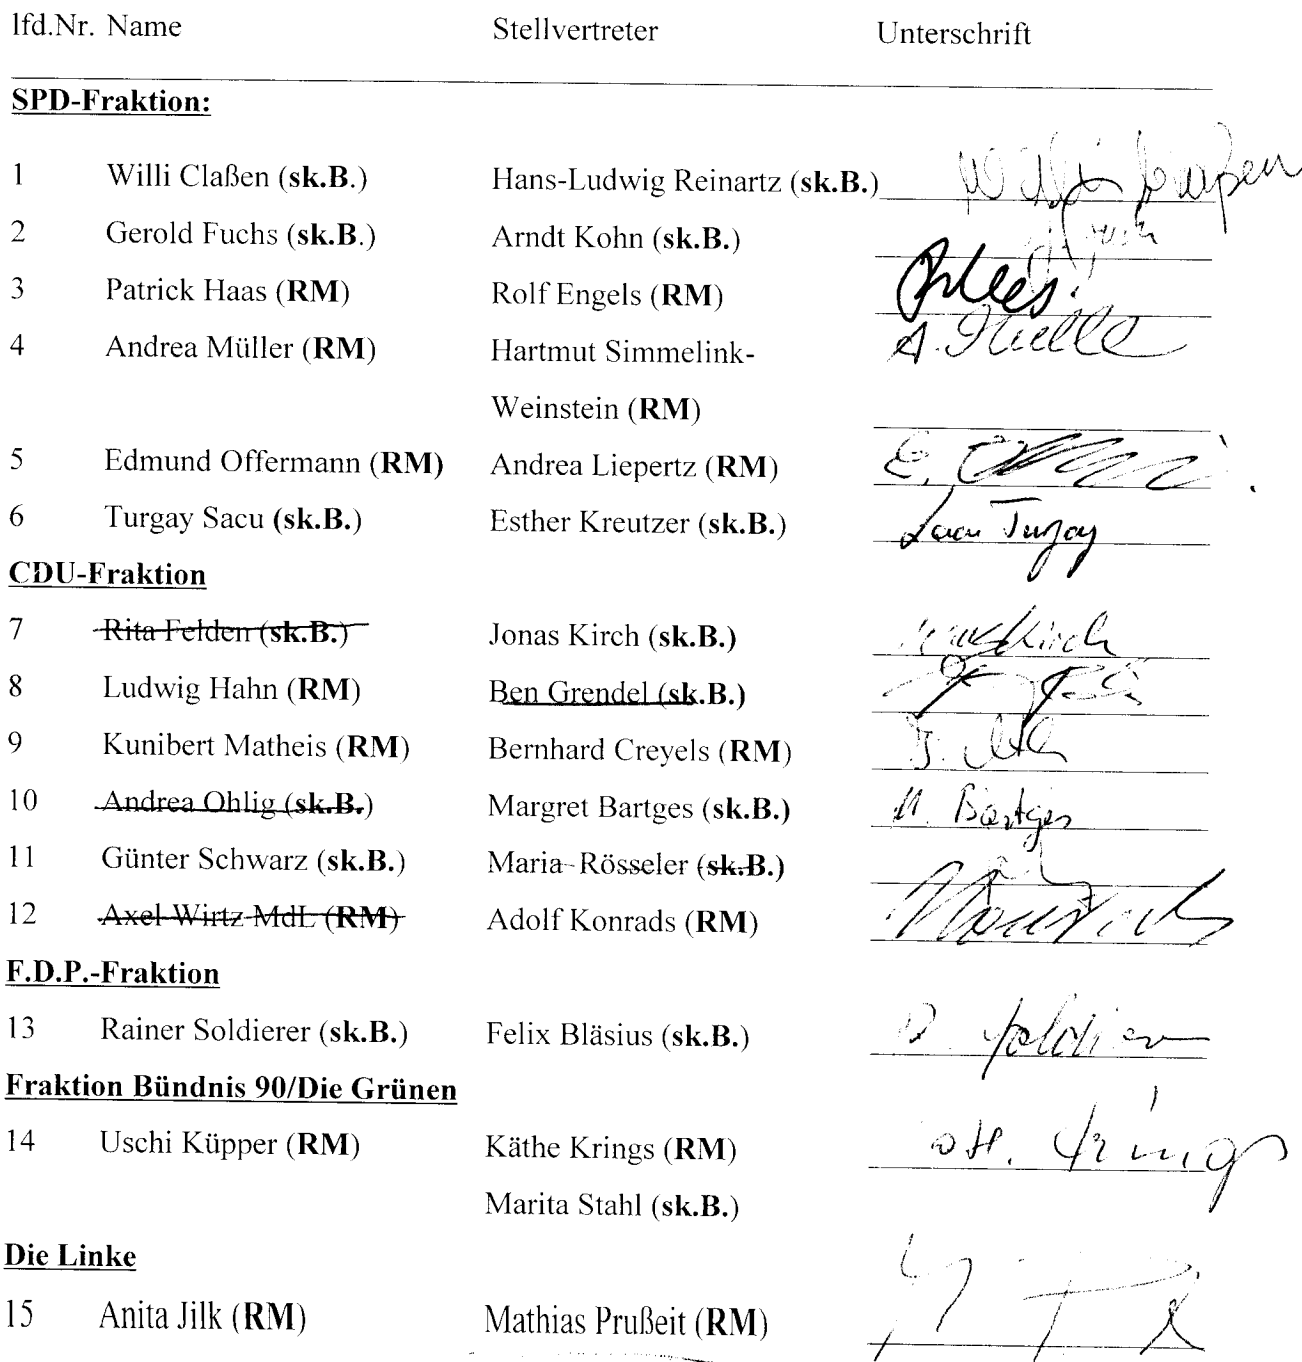 lfd.Nr. Name Stellvertreter Unterschrift
SPD-Fraktion:
1 Willi Claßen (sk.B.) Hans-Ludwig Reinartz (sk.B.) Willi Claßen
2 Gerold Fuchs (sk.B.) Arndt Kohn (sk.B.)
3 Patrick Haas (RM) Rolf Engels (RM)
4 Andrea Müller (RM) Hartmut Simmelink- A.
Weinstein (RM)
5 Edmund Offermann (RM) Andrea Liepertz (RM) E.
6 Turgay Sacu (sk.B.) Esther Kreutzer (sk.B.) Sacu Turgay
CDU-Fraktion
7 Rita Felden (sk.B.) Jonas Kirch (sk.B.) Kirch
8 Ludwig Hahn (RM) Ben Grendel (sk.B.)
9 Kunibert Matheis (RM) Bernhard Creyels (RM)
10 Andrea Ohlig (sk.B.) Margret Bartges (sk.B.) M. Bartges
11 Günter Schwarz (sk.B.) Maria Rösseler (sk.B.)
12 Axel Wirtz MdL (RM) Adolf Konrads (RM)
F.D.P.-Fraktion
13 Rainer Soldierer (sk.B.) Felix Bläsius (sk.B.)
Fraktion Bündnis 90/Die Grünen
14 Uschi Küpper (RM) Käthe Krings (RM) Krings
Marita Stahl (sk.B.)
Die Linke
15 Anita Jilk (RM) Mathias Prußeit (RM)